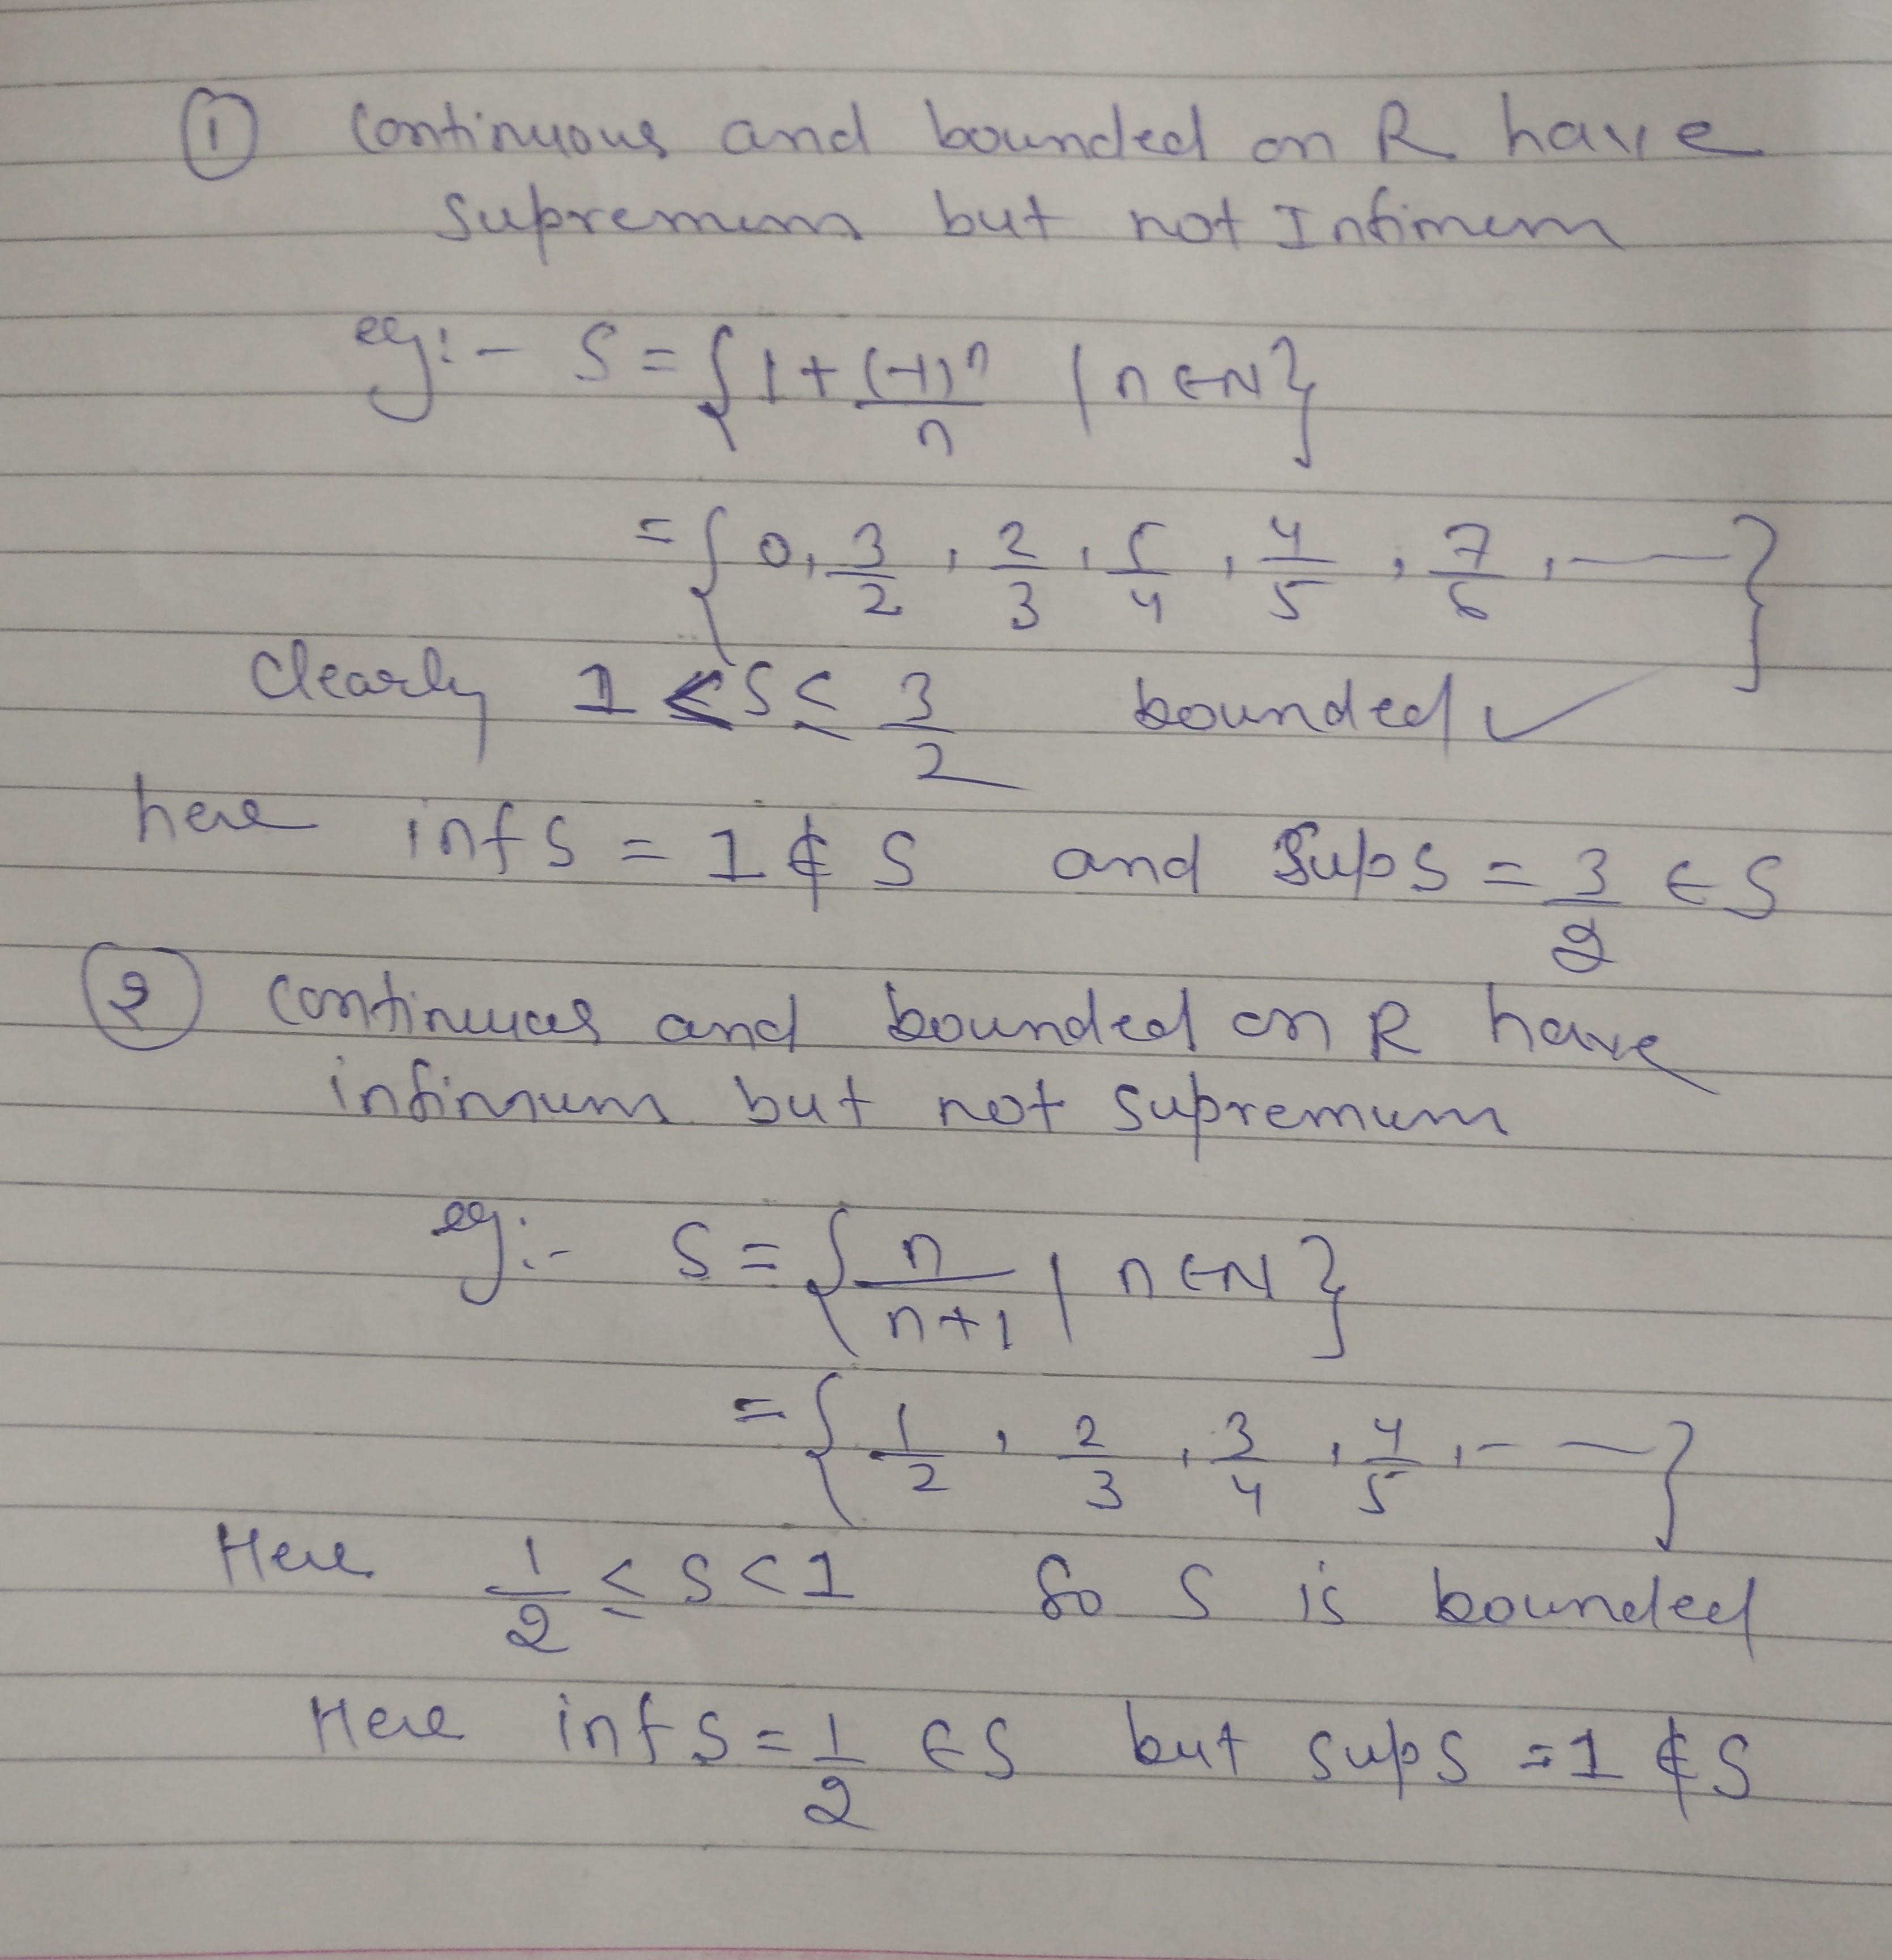 ① Continuous and bounded on R have
Supremum but not Infimum
eg:- S = {1 + (-1)ⁿ/n | n ∈ N}
= {0, 3/2, 2/3, 5/4, 4/5, 7/6, --- }
Clearly 1 ≤ S ≤ 3/2 bounded ✓
here inf S = 1 ∉ S and Sup S = 3/2 ∈ S
② Continuous and bounded on R have
infimum but not supremum
eg:- S = {n/n+1 | n ∈ N}
= {1/2, 2/3, 3/4, 4/5, --- }
Here 1/2 ≤ S < 1 So S is bounded
Here inf S = 1/2 ∈ S but sup S = 1 ∉ S